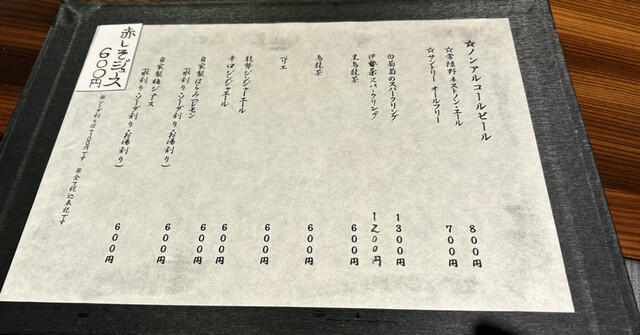 ☆ノンアルコールビール
☆常陸野ネスト・ノン・エール 800円
☆サントリー オールフリー 700円
白葡萄のスパークリング 1300円
伊勢茶スパークリング 1200円
黒烏龍茶 600円
烏龍茶 600円
600円
能勢ジンジャーエール 600円
辛口ジンジャーエール 600円
自家製はちみつレモン 600円
(水割り・ソーダ割り・お湯割り)
自家製梅ジュース 600円
(水割り・ソーダ割り・お湯割り)
※ソーダ割りは+100円です ※全て税込表記です
赤しそジュース
600円